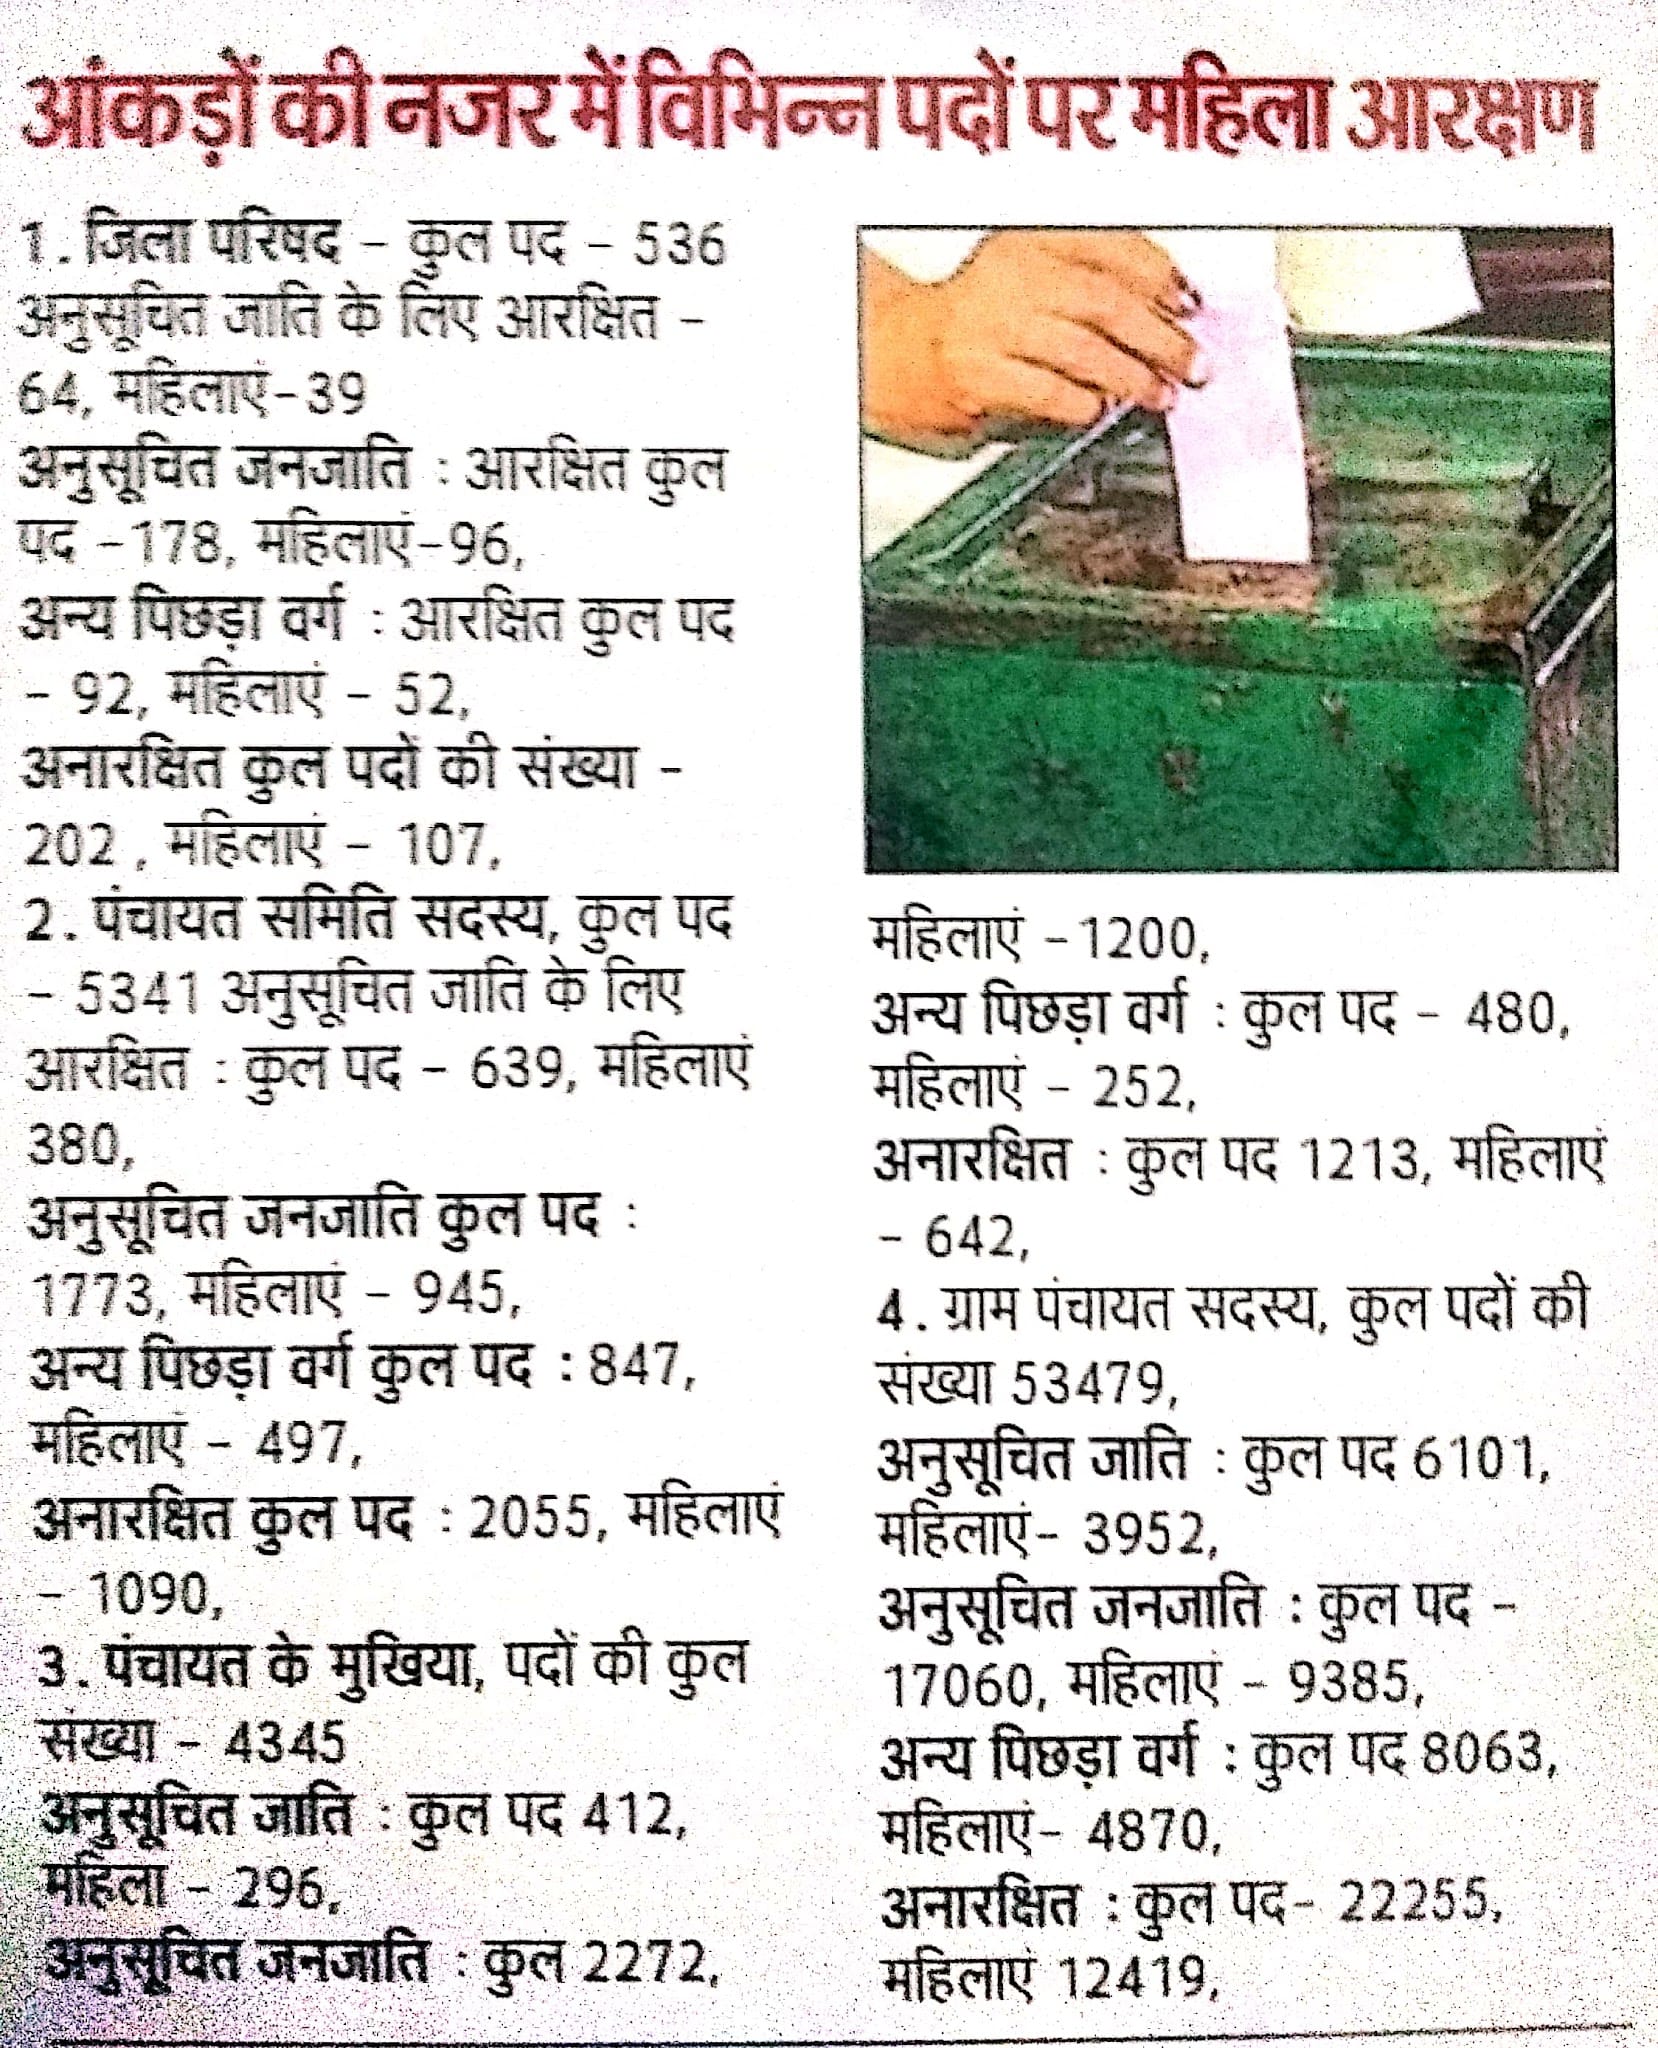 आंकड़ों की नजर में विभिन्न पदों पर महिला आरक्षण
1. जिला परिषद - कुल पद - 536
अनुसूचित जाति के लिए आरक्षित -
64, महिलाएं-39
अनुसूचित जनजाति : आरक्षित कुल
पद -178, महिलाएं-96,
अन्य पिछड़ा वर्ग : आरक्षित कुल पद
- 92, महिलाएं - 52,
अनारक्षित कुल पदों की संख्या -
202 , महिलाएं - 107,
2. पंचायत समिति सदस्य, कुल पद
- 5341 अनुसूचित जाति के लिए
आरक्षित : कुल पद - 639, महिलाएं
380,
अनुसूचित जनजाति कुल पद :
1773, महिलाएं - 945,
अन्य पिछड़ा वर्ग कुल पद : 847,
महिलाएं - 497,
अनारक्षित कुल पद : 2055, महिलाएं
- 1090,
3. पंचायत के मुखिया, पदों की कुल
संख्या - 4345
अनुसूचित जाति : कुल पद 412,
महिला - 296,
अनुसूचित जनजाति : कुल 2272,
महिलाएं -1200,
अन्य पिछड़ा वर्ग : कुल पद - 480,
महिलाएं - 252,
अनारक्षित : कुल पद 1213, महिलाएं
- 642,
4. ग्राम पंचायत सदस्य, कुल पदों की
संख्या 53479,
अनुसूचित जाति : कुल पद 6101,
महिलाएं- 3952,
अनुसूचित जनजाति : कुल पद -
17060, महिलाएं - 9385,
अन्य पिछड़ा वर्ग : कुल पद 8063,
महिलाएं- 4870,
अनारक्षित : कुल पद- 22255,
महिलाएं 12419,